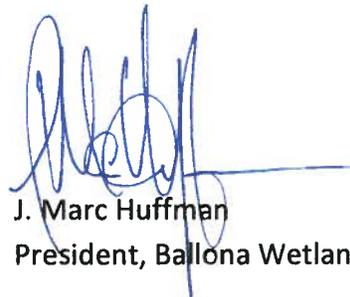 J. Marc Huffman
President, Ballona Wetlan